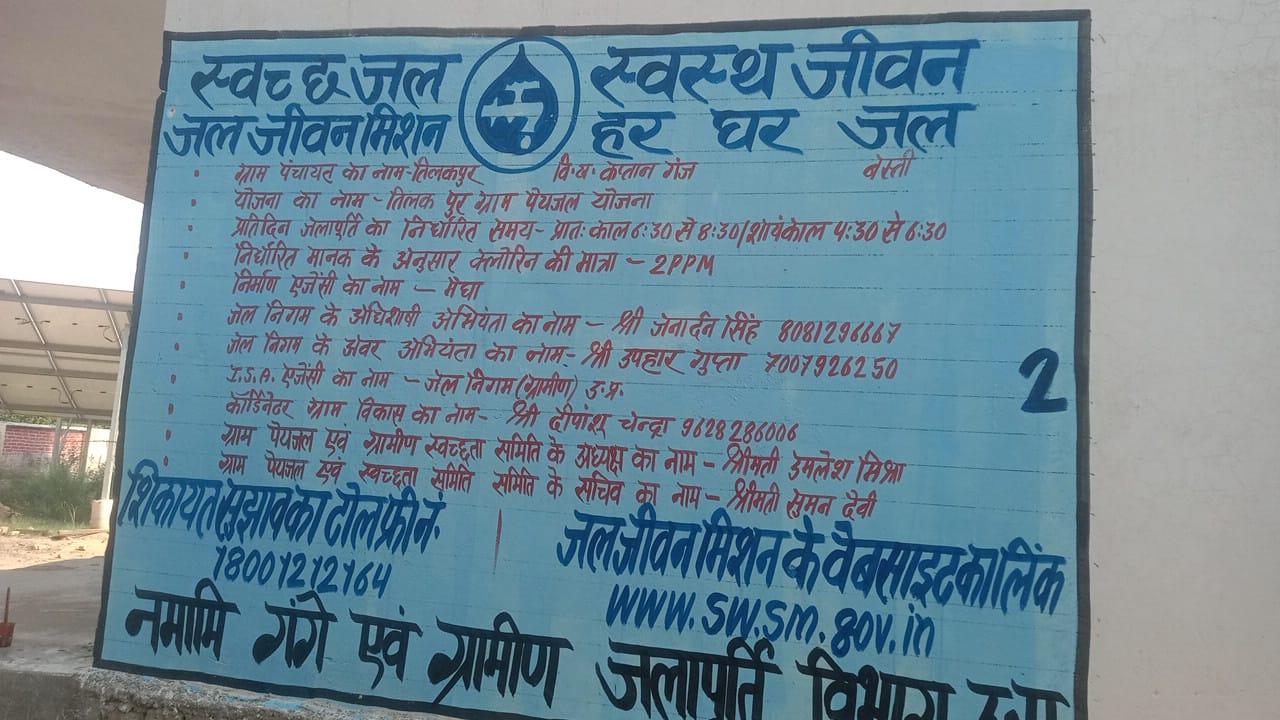 स्वच्छ जल स्वस्थ जीवन
जल जीवन मिशन हर घर जल
ग्राम पंचायत का नाम-तिलकपुर वि.ख. कप्तान गंज बस्ती
योजना का नाम - तिलक पुर ग्राम पेयजल योजना
प्रतिदिन जलापूर्ति का निर्धारित समय- प्रातः काल 6:30 से 8:30/शायंकाल 4:30 से 6:30
निर्धारित मानक के अनुसार क्लोरिन की मात्रा - 2PPM
निर्माण एजेंसी का नाम - मेघा
जल निगम के अधिशाषी अभियंता का नाम - श्री जनार्दन सिंह 8081296667
जल निगम के अवर अभियंता का नाम- श्री उपहार गुप्ता 7007926250
I.S.A. एजेंसी का नाम - जल निगम (ग्रामीण) उ.प्र.
कॉर्डिनेटर ग्राम विकास का नाम- श्री दीपांशु चन्द्रा 9628286006
ग्राम पेयजल एवं ग्रामीण स्वच्छता समिति के अध्यक्ष का नाम - श्रीमती उमलेश मिश्रा
ग्राम पेयजल एवं स्वच्छता समिति समिति के सचिव का नाम - श्रीमती सुमन देवी
2
शिकायत सुझाव का टोल फ्री नं.
18001212164
जल जीवन मिशन के वेबसाइट का लिंक
www.swsm.gov.in
नमामि गंगे एवं ग्रामीण जलापूर्ति विभाग